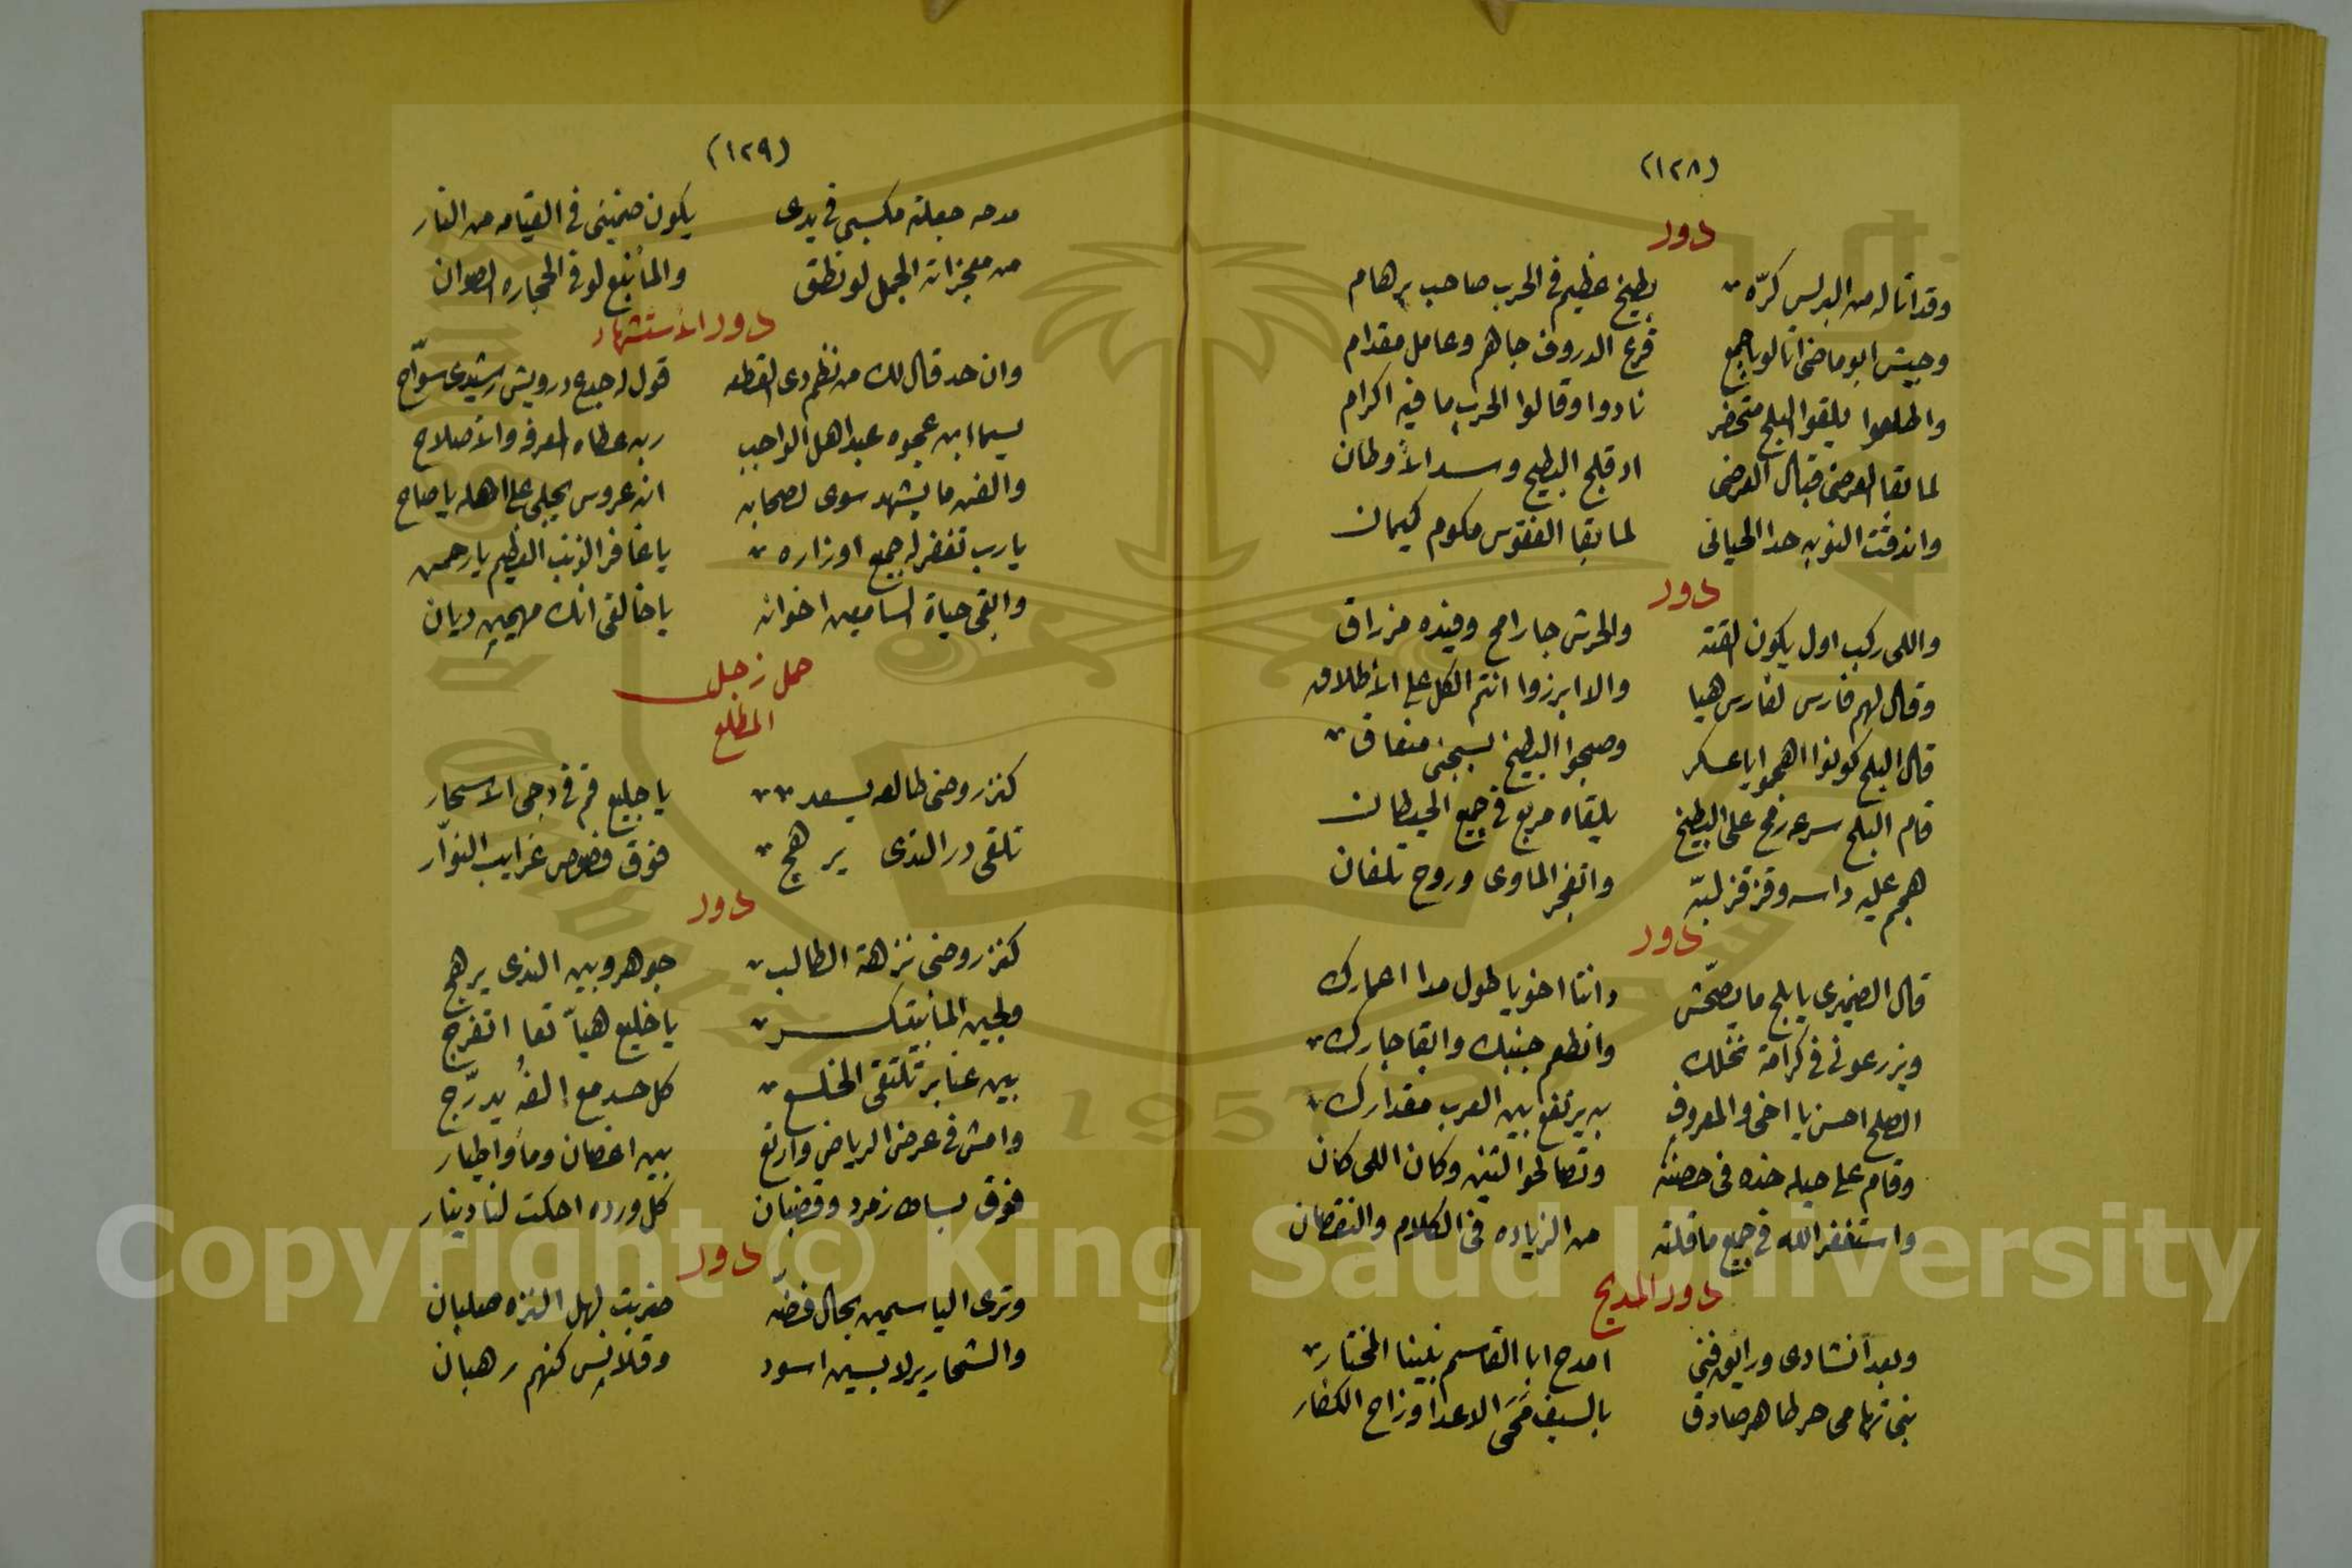 (١٢٨)
دور
وقد اتا له من البرلس كرّه بطيخ عظيم في الحرب صاحب برهام
وجيش ابو ماضى اتا لو باجمع قرع الدروف جاهر وعامل مقدام
واطلعوا يلقوا البلح متحضر نادوا وقالوا الحرب ما فيه اكرام
لما بقا العرضى قبال العرضى ادقلج البطيخ وسد الأوطان
واندقت النوبه حدا الحيانى لما بقا الفقوس مكوم كيمان
دور
واللى ركب اول يكون لقته والحرش جا رامح وفيده مزراق
وقال لهم فارس لفارس هيا والا ابرزوا انتم الكل على الأطلاق
قال البلح كونوا اهجموا يا عسكر وصبحوا البطيخ بسجنى منفاق
قام البلح سرعه رمح على البطيخ يلقاه مربع في جميع الحيطان
هجم عليه داسه وقزقز لبّه واتفجر الماوى وروح تلفان
دور
قال الضميرى يا بلح ما يصحّش وانتا اخويا طول مدا اعمارك
ويزرعونى في كرامة نخلك وانطعم جنبك وابقا جارك
الصلح احسن يا اخى والمعروف به يرتفع بين العرب مقدارك
وقام على حيله خده في حضنه وتصالحوا لتنين وكان اللى كان
واستغفر الله في جميع ما قلته من الزياده في الكلام والنقصان
دور المديح
وبعد انشادى ورايق فنى امدح ابا القاسم نبينا المختار
نبى تهامى حر طاهر صادق بالسيف محى الاعدا وزاح الكفار
(١٢٩)
مدحه جعلته مكسبى في يدى يكون ضمينى في القيامه من النار
من معجزاته الجمل لو نطق والما نبع لو في الحجاره الصوان
دور الأستشهاد
وان حد قال لك من نظم دى القطعه قول له جدع درويش رشيدى سوّاح
يسما ابن عجوه عبد اهل الواجب ربه عطاه المعرفه والأصلاح
والفن ما يشهد سوى لصحابه انه عروس يجلى على اهله يا صاح
يارب تغفر له جميع اوزاره يا غافر الذنب العظيم يا رحمن
وابقى حياة السامعين اخوانه يا خالقى انك مهيمن ديان
حمل زجل
المطلع
كنز روضى طالعه يسعد يا خليع قم في دجى الاسحار
تلقى در الندى يرهج فوق فصوص غرايب النوّار
دور
كنز روضى نزهة الطالب جوهر وبين الندى يرهج
ولجين الما بيتكسر يا خليع هيّا تعا اتفرج
بين عنابر تلتقى الخلع كل حد مع الفُه يدرّج
وامش في عرض الرياض وارتع بين اغصان وما واطيار
فوق بساط زمرد وقضبان كل ورده احكت لنا دينار
دور
وترى الياسمين بحال فضّه ضربت لهل النزه صلبان
والشحارير لابسين اسود وقلانس كنهم رهبان